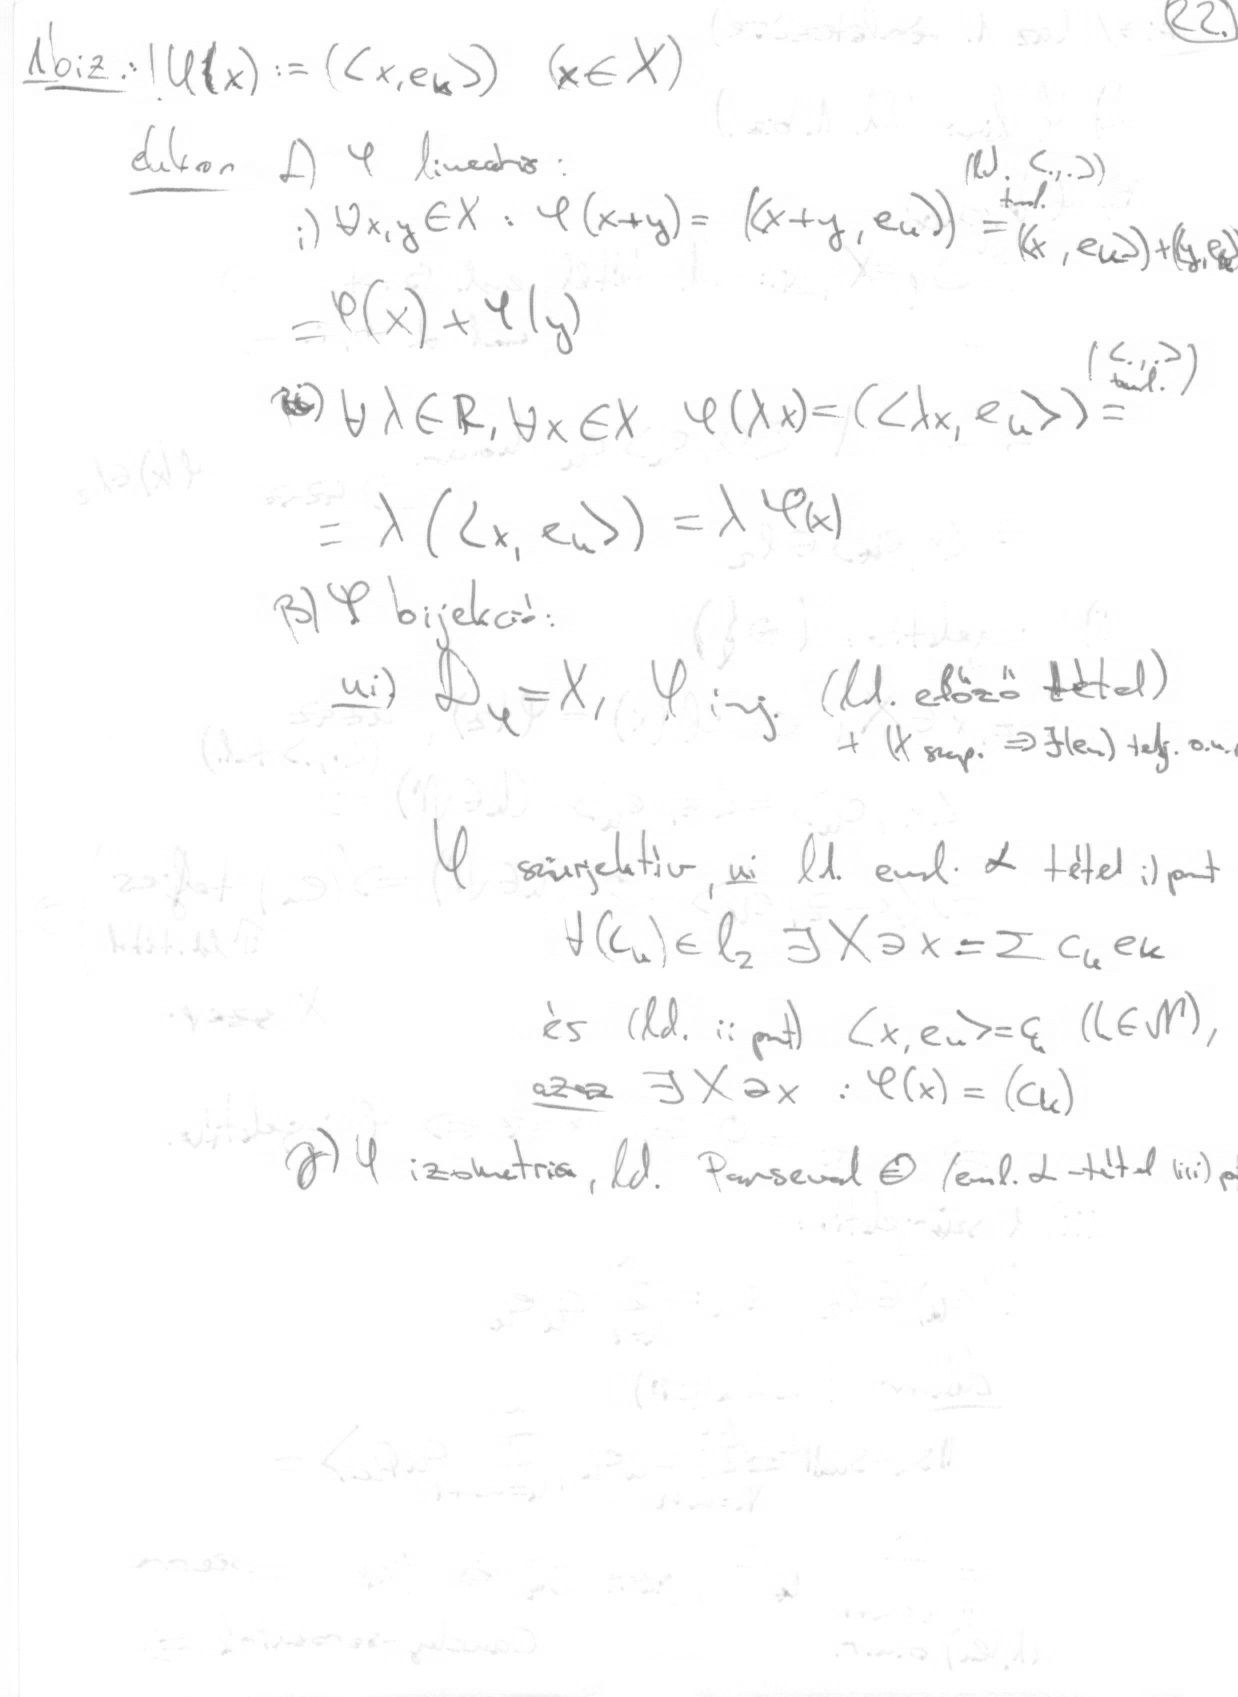 22.
1biz.: ! φ(x) := (<x, e_k>) (x ∈ X)
ekkor α) φ lineáris:
(ld. <.,.>) tul.
i) ∀x,y ∈ X : φ(x+y) = (<x+y, e_k>) = (<x, e_k>) + (<y, e_k>)
= φ(x) + φ(y)
(<.,.> tul.)
ii) ∀ λ ∈ R, ∀x ∈ X φ(λx) = (<λx, e_k>) =
= λ (<x, e_k>) = λ φ(x)
β) φ bijekció:
ui) D_φ = X, φ inj. (ld. előző tétel)
+ (X szep. ⇒ ∃(e_k) telj. o.n.
φ szürjektív, ui ld. eml. α tétel i) pont
∀(c_k) ∈ l_2 ∃ X ∋ x = Σ c_k e_k
és (ld. ii pont) <x, e_k> = c_k (k ∈ N),
azaz ∃ X ∋ x : φ(x) = (c_k)
γ) φ izometria, ld. Parseval = (eml. α-tétel iii)